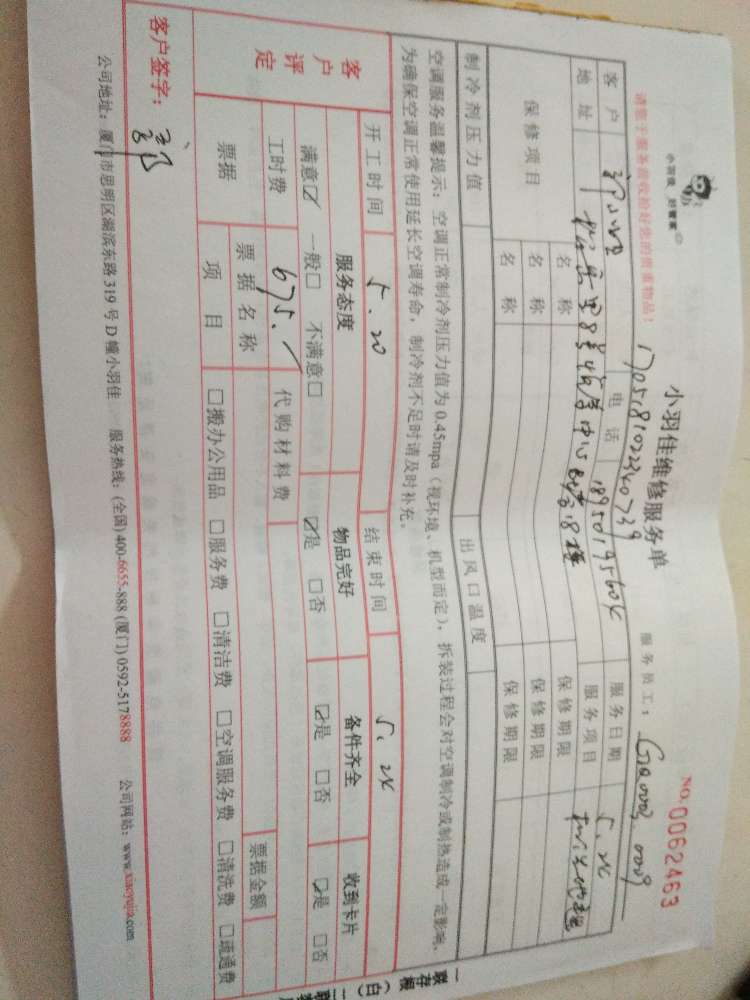 小羽佳 好管家
小羽佳维修服务单
NO.0062463
请您于服务前收拾好您的贵重物品!
1705181022340739
服务员工:
客户
电话
服务日期 5.24
地址
服务项目
保修项目
名称
保修期限
名称
保修期限
名称
保修期限
制冷剂压力值
出风口温度
空调服务温馨提示:空调正常制冷剂压力值为0.45mpa(视环境、机型而定),拆装过程会对空调制冷或制热造成一定影响,
为确保空调正常使用延长空调寿命,制冷剂不足时请及时补充。
开工时间 5.20
结束时间 5.24
客户评定
服务态度
物品完好
备件齐全
收到卡片
满意☑ 一般□ 不满意□
☑是 □否
☑是 □否
☑是 □否
工时费 675.
代购材料费
票据
票据名称
票据金额
项目
□搬办公用品 □服务费 □清洁费 □空调服务费 □清洗费 □疏通费
客户签字:
公司地址:厦门市思明区湖滨东路319号D幢小羽佳 服务热线:(全国)400-6655-888 (厦门)0592-5178888 公司网站:www.xiaoyujia.com